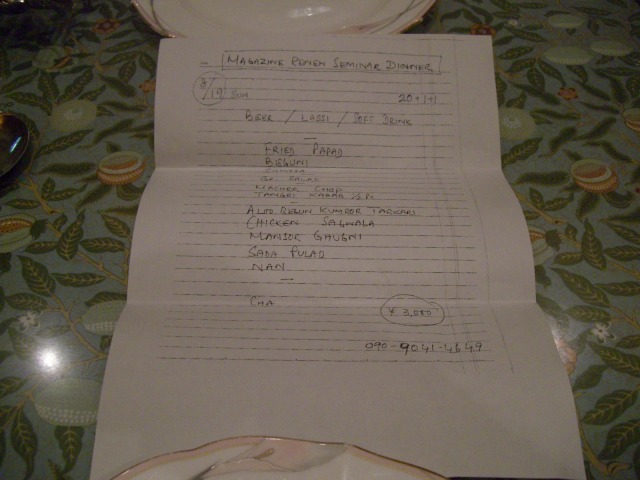 MAGAZINE REMEN SEMINAR DINNER
8/19 SUN
20+1+1
BEER / LASSI / SOFT DRINK
FRIED PAPAD
BEGUNI
SAMOSA
GR. SALAD
KABAB 1/2 Pc
ALOO BEGUN KUMROR TARKARI
CHICKEN SAGWALA
MANSOR GHUGNI
SADA PULAO
NAN
CHA
¥ 3,000
090-9041-4649